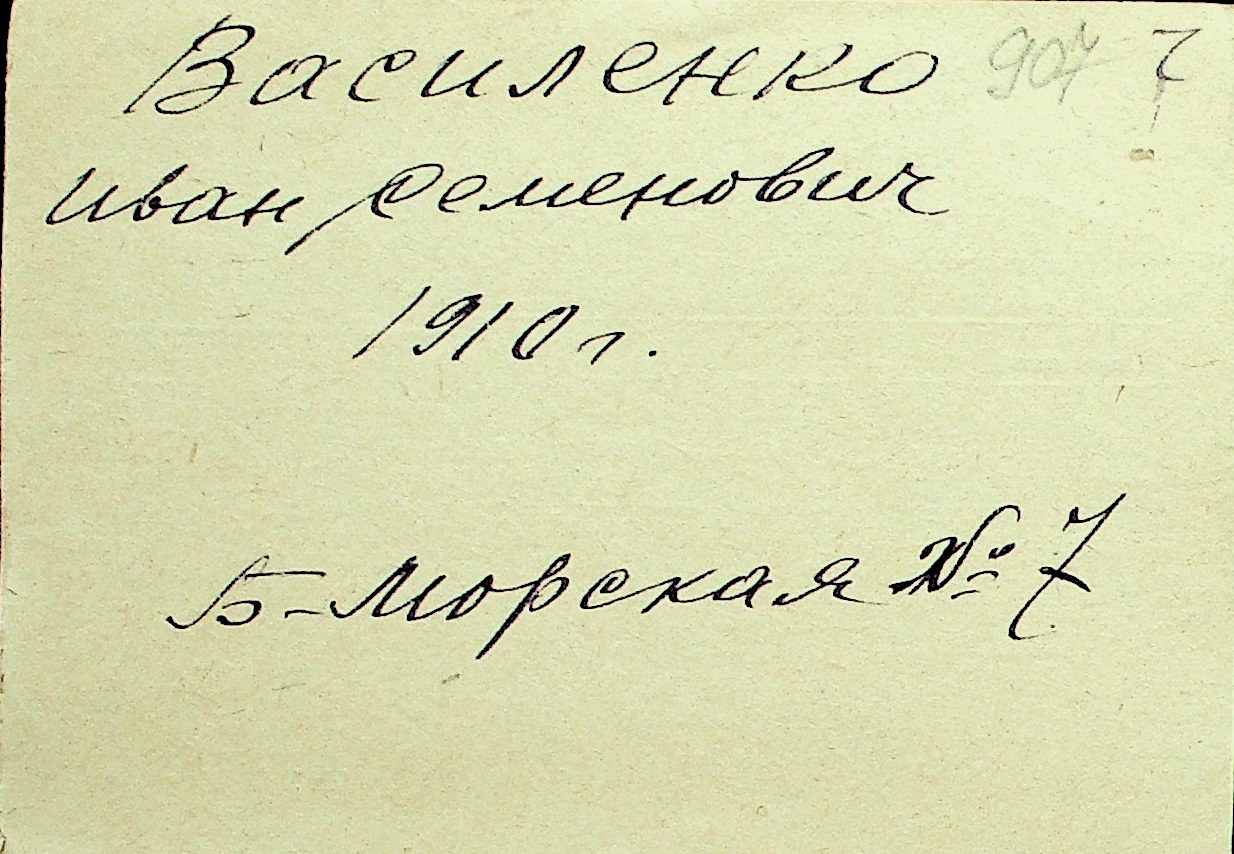 Василенко 907 7
Иван Семенович
1910 г.
Б-Морская № 7